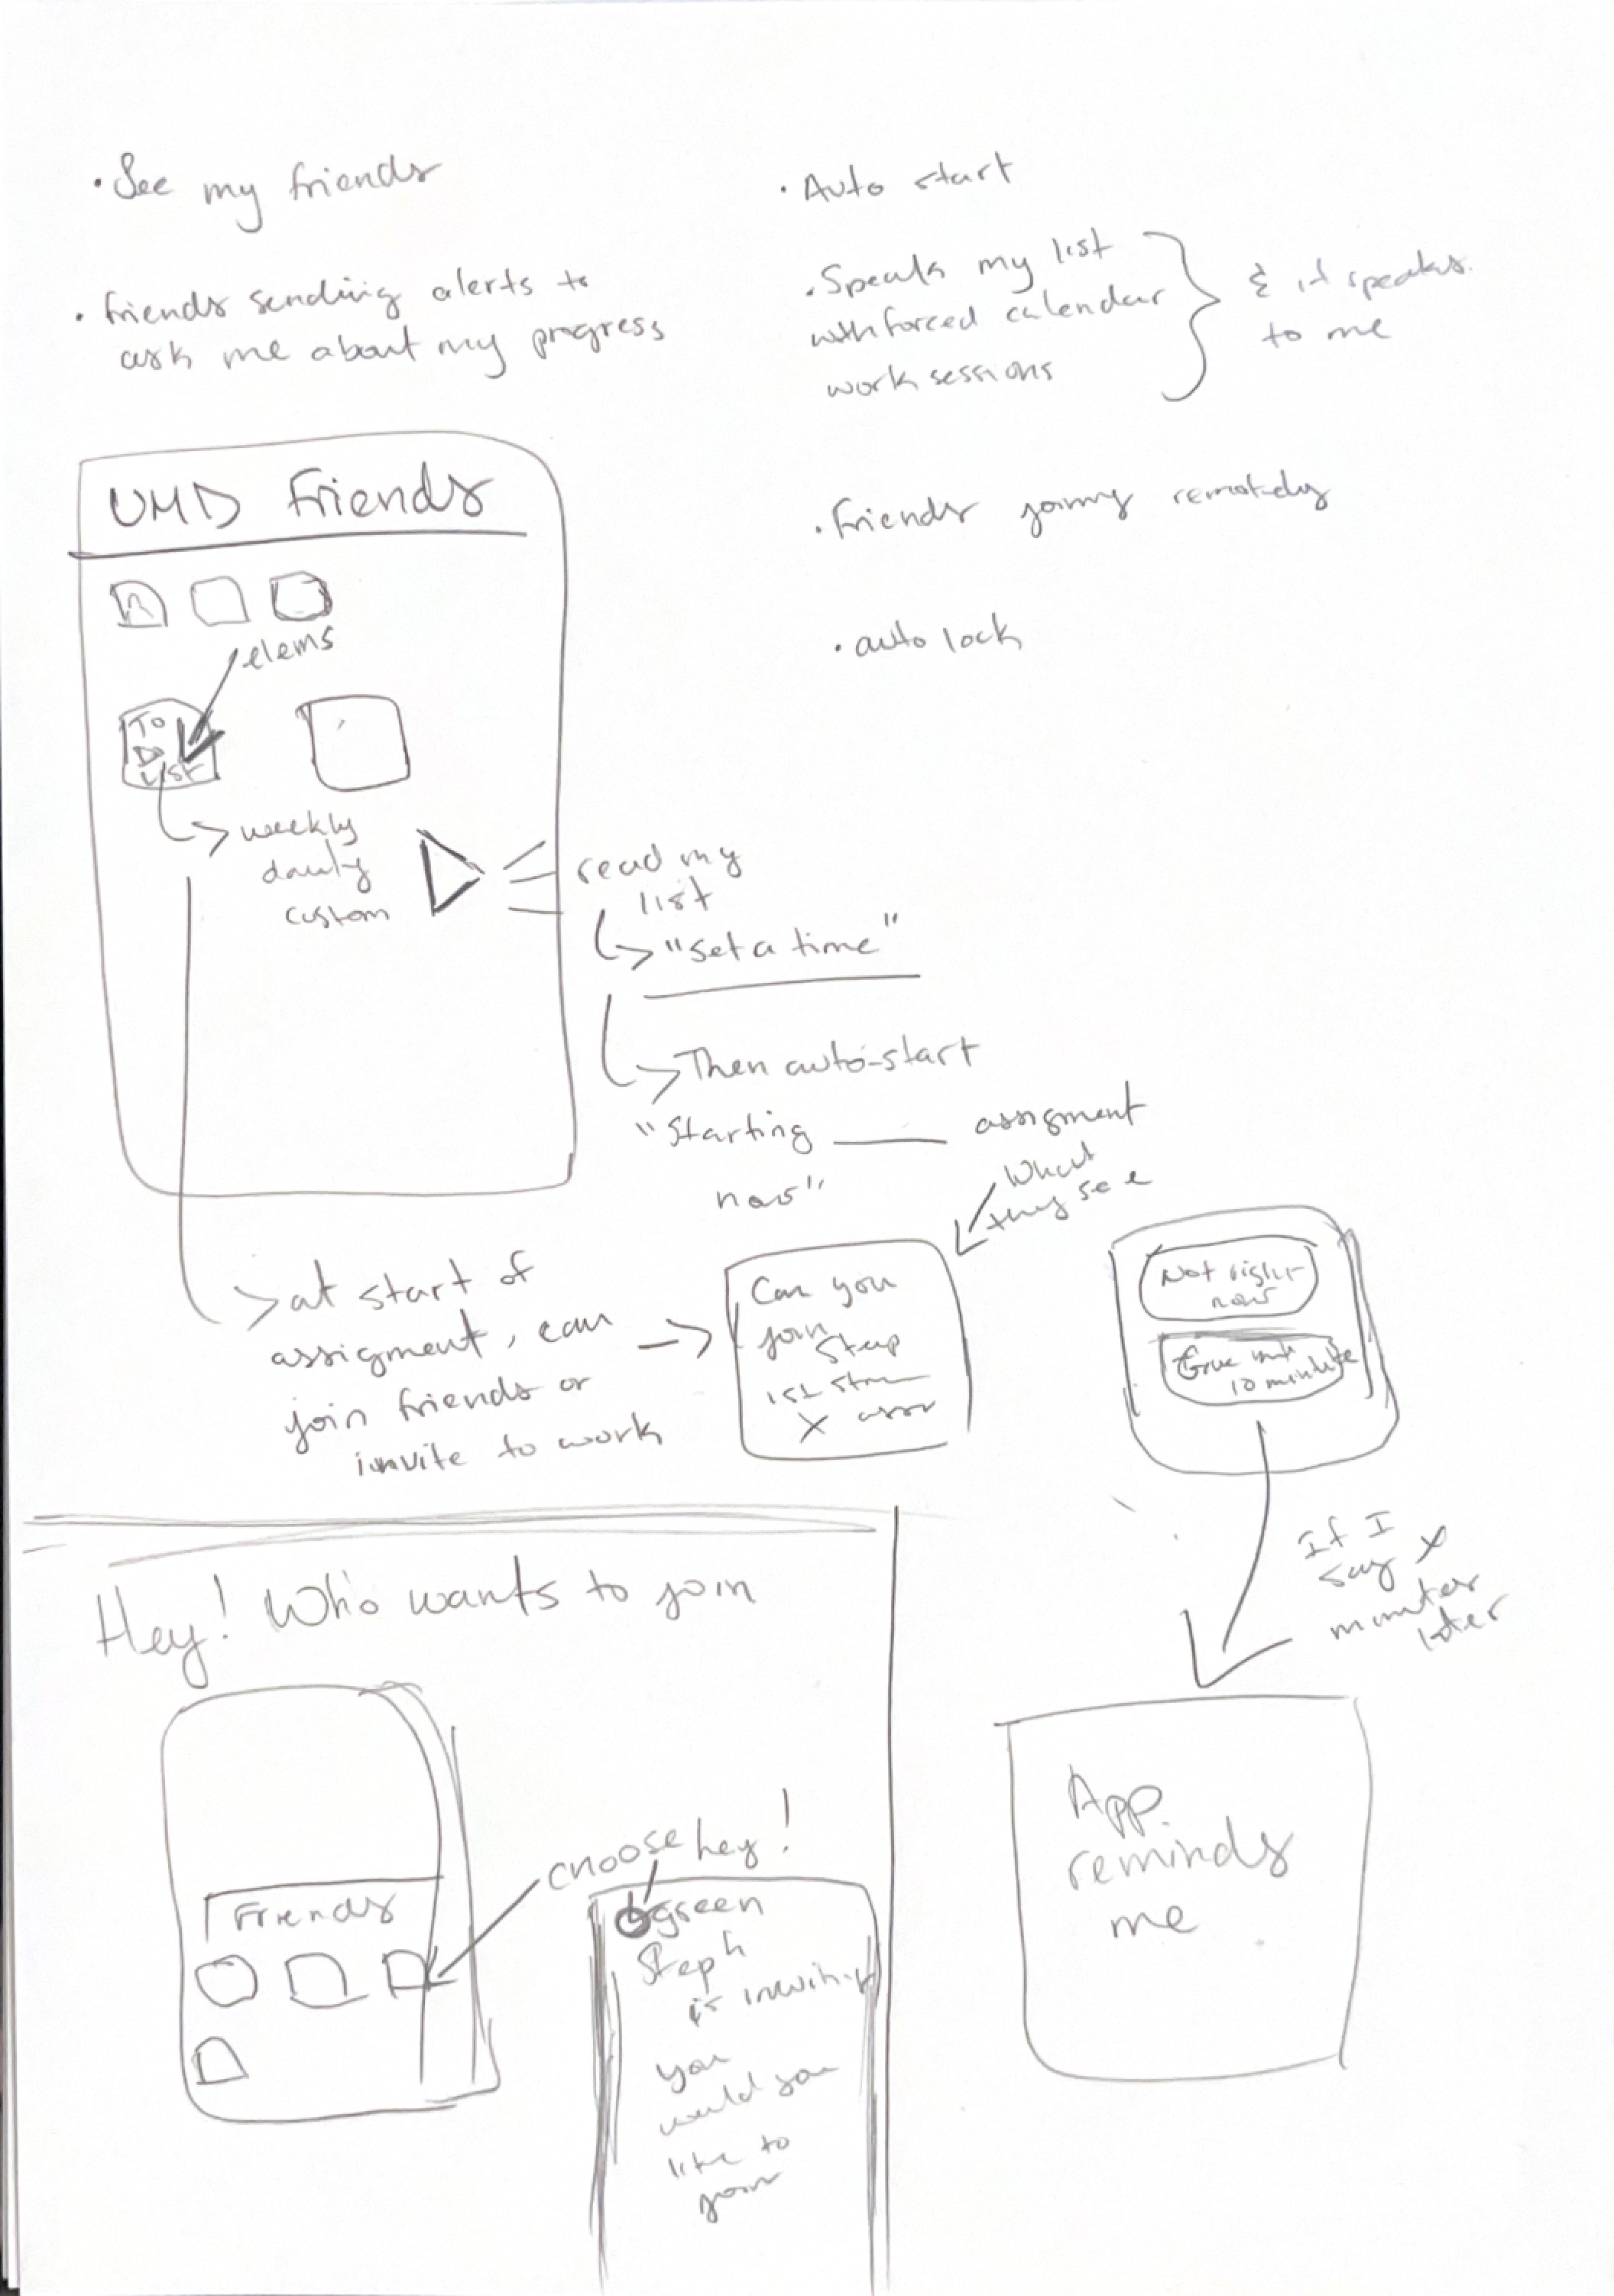 • See my friends
• friends sending alerts to
ask me about my progress
• Auto start
• Speaks my list
with forced calendar
work sessions
& it speaks
to me
• friends joining remotely
• auto lock
UMD friends
elems
To
Do
List
weekly
daily
custom
read my
list
"set a time"
Then auto-start
"Starting ____ assigment
now"
What
they see
at start of
assigment, can
join friends or
invite to work
Can you
join
Steph
X
Not right
now
Give me
10 minute
If I
say X
minutes
later
App
reminds
me
Hey! Who wants to join
Friends
choose
hey!
green
Steph
is
you
would you
like to
join